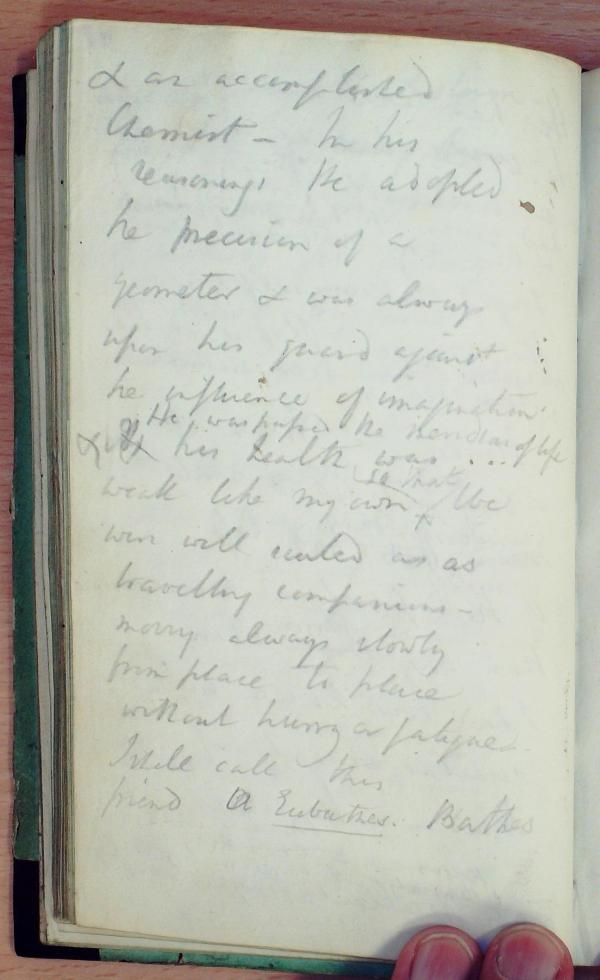 & an accomplished
Chemist – In his
reasonings He adopted
he precision of a
geometer & was always
upon his guard against
he influence of imagination.
He was passed the meridian of life
& his health was
weak like my own so that We
were well suited as
travelling companions –
moving always slowly
from place to place
without hurry or fatigue.
I shall call this
friend Eubathes. Bathes